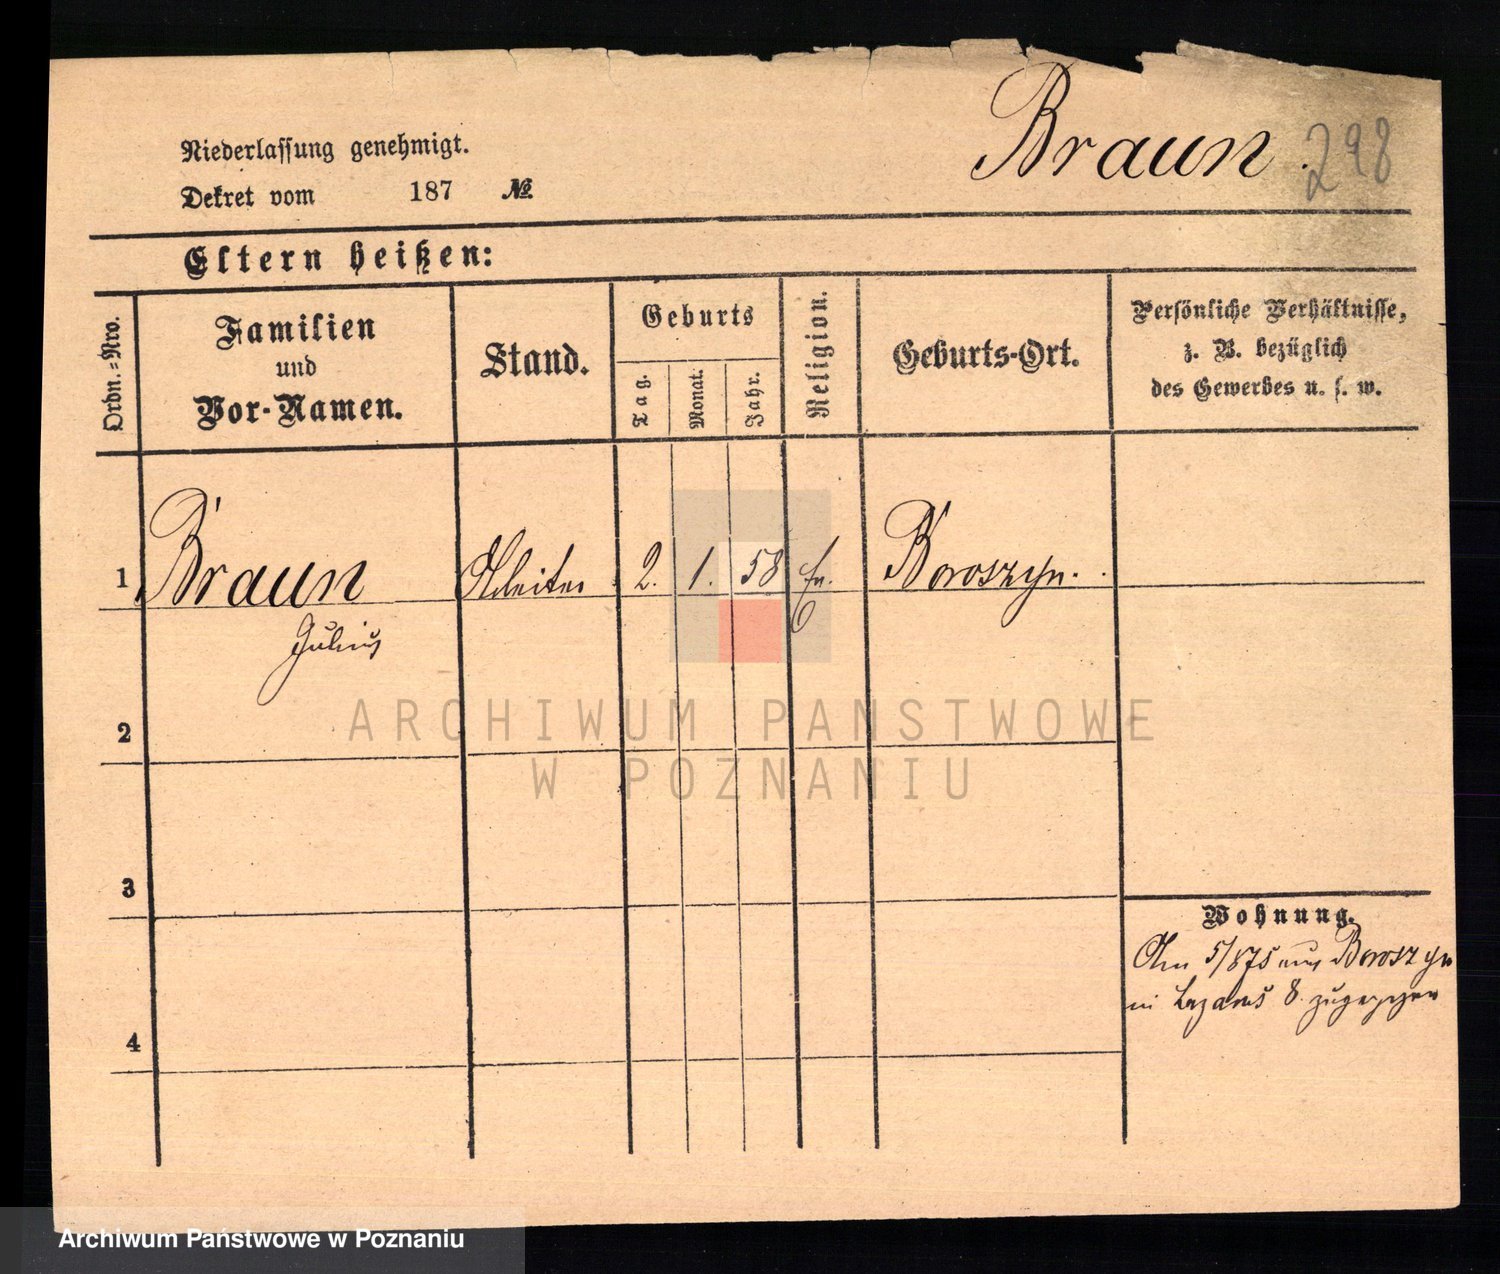 Braun. 298
Niederlassung genehmigt.
Dekret vom 187 №
Eltern heißen:
Ordn.-Nro.
Familien
und
Vor-Namen.
Stand.
Geburts
Tag.
Monat.
Jahr.
Religion.
Geburts-Ort.
Persönliche Verhältnisse,
z. B. bezüglich
des Gewerbes u. s. w.
1 Braun 2. 1. 58 Boroszyn.
Julius
2
3
4
Wohnung.
Am 5/875 aus Boroszyn
in Lazarus 8. zugezogen
ARCHIWUM PAŃSTWOWE
W POZNANIU
Archiwum Państwowe w Poznaniu